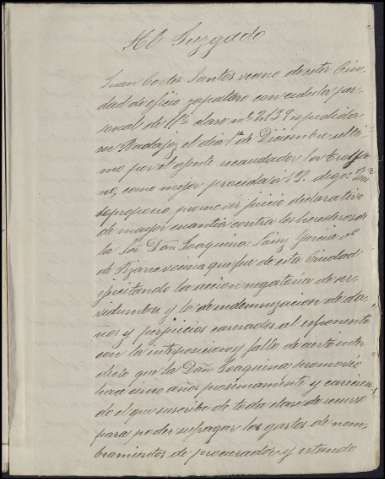 Al Juzgado
Juan Cortes Santos vecino de esta Ciu-
dad de oficio zapatero con cedula per-
sonal de 11ª clase nº 2139 expedida
en Badajoz el dia 1º de Diciembre ulti-
mo por el agente recaudador
como mejor proceda á V. S. digo: Que
me propongo promover juicio declarativo
de mayor cuantia contra los herederos de
la Sra Doña Joaquina Sainz Garcia vª
de Bizarro vecina que fué de esta Ciudad
ejercitando la accion negatoria de ser-
vidumbre y la de indemnizacion de da-
ños y perjuicios causados al exponente
con la interposicion y fallo de cierto inter-
dicto que la Doña Joaquina promovió
hace cinco años proximamente y carecien-
do el que suscribe de toda clase de recursos
para poder sufragar los gastos de nom-
bramientos de procurador y estando